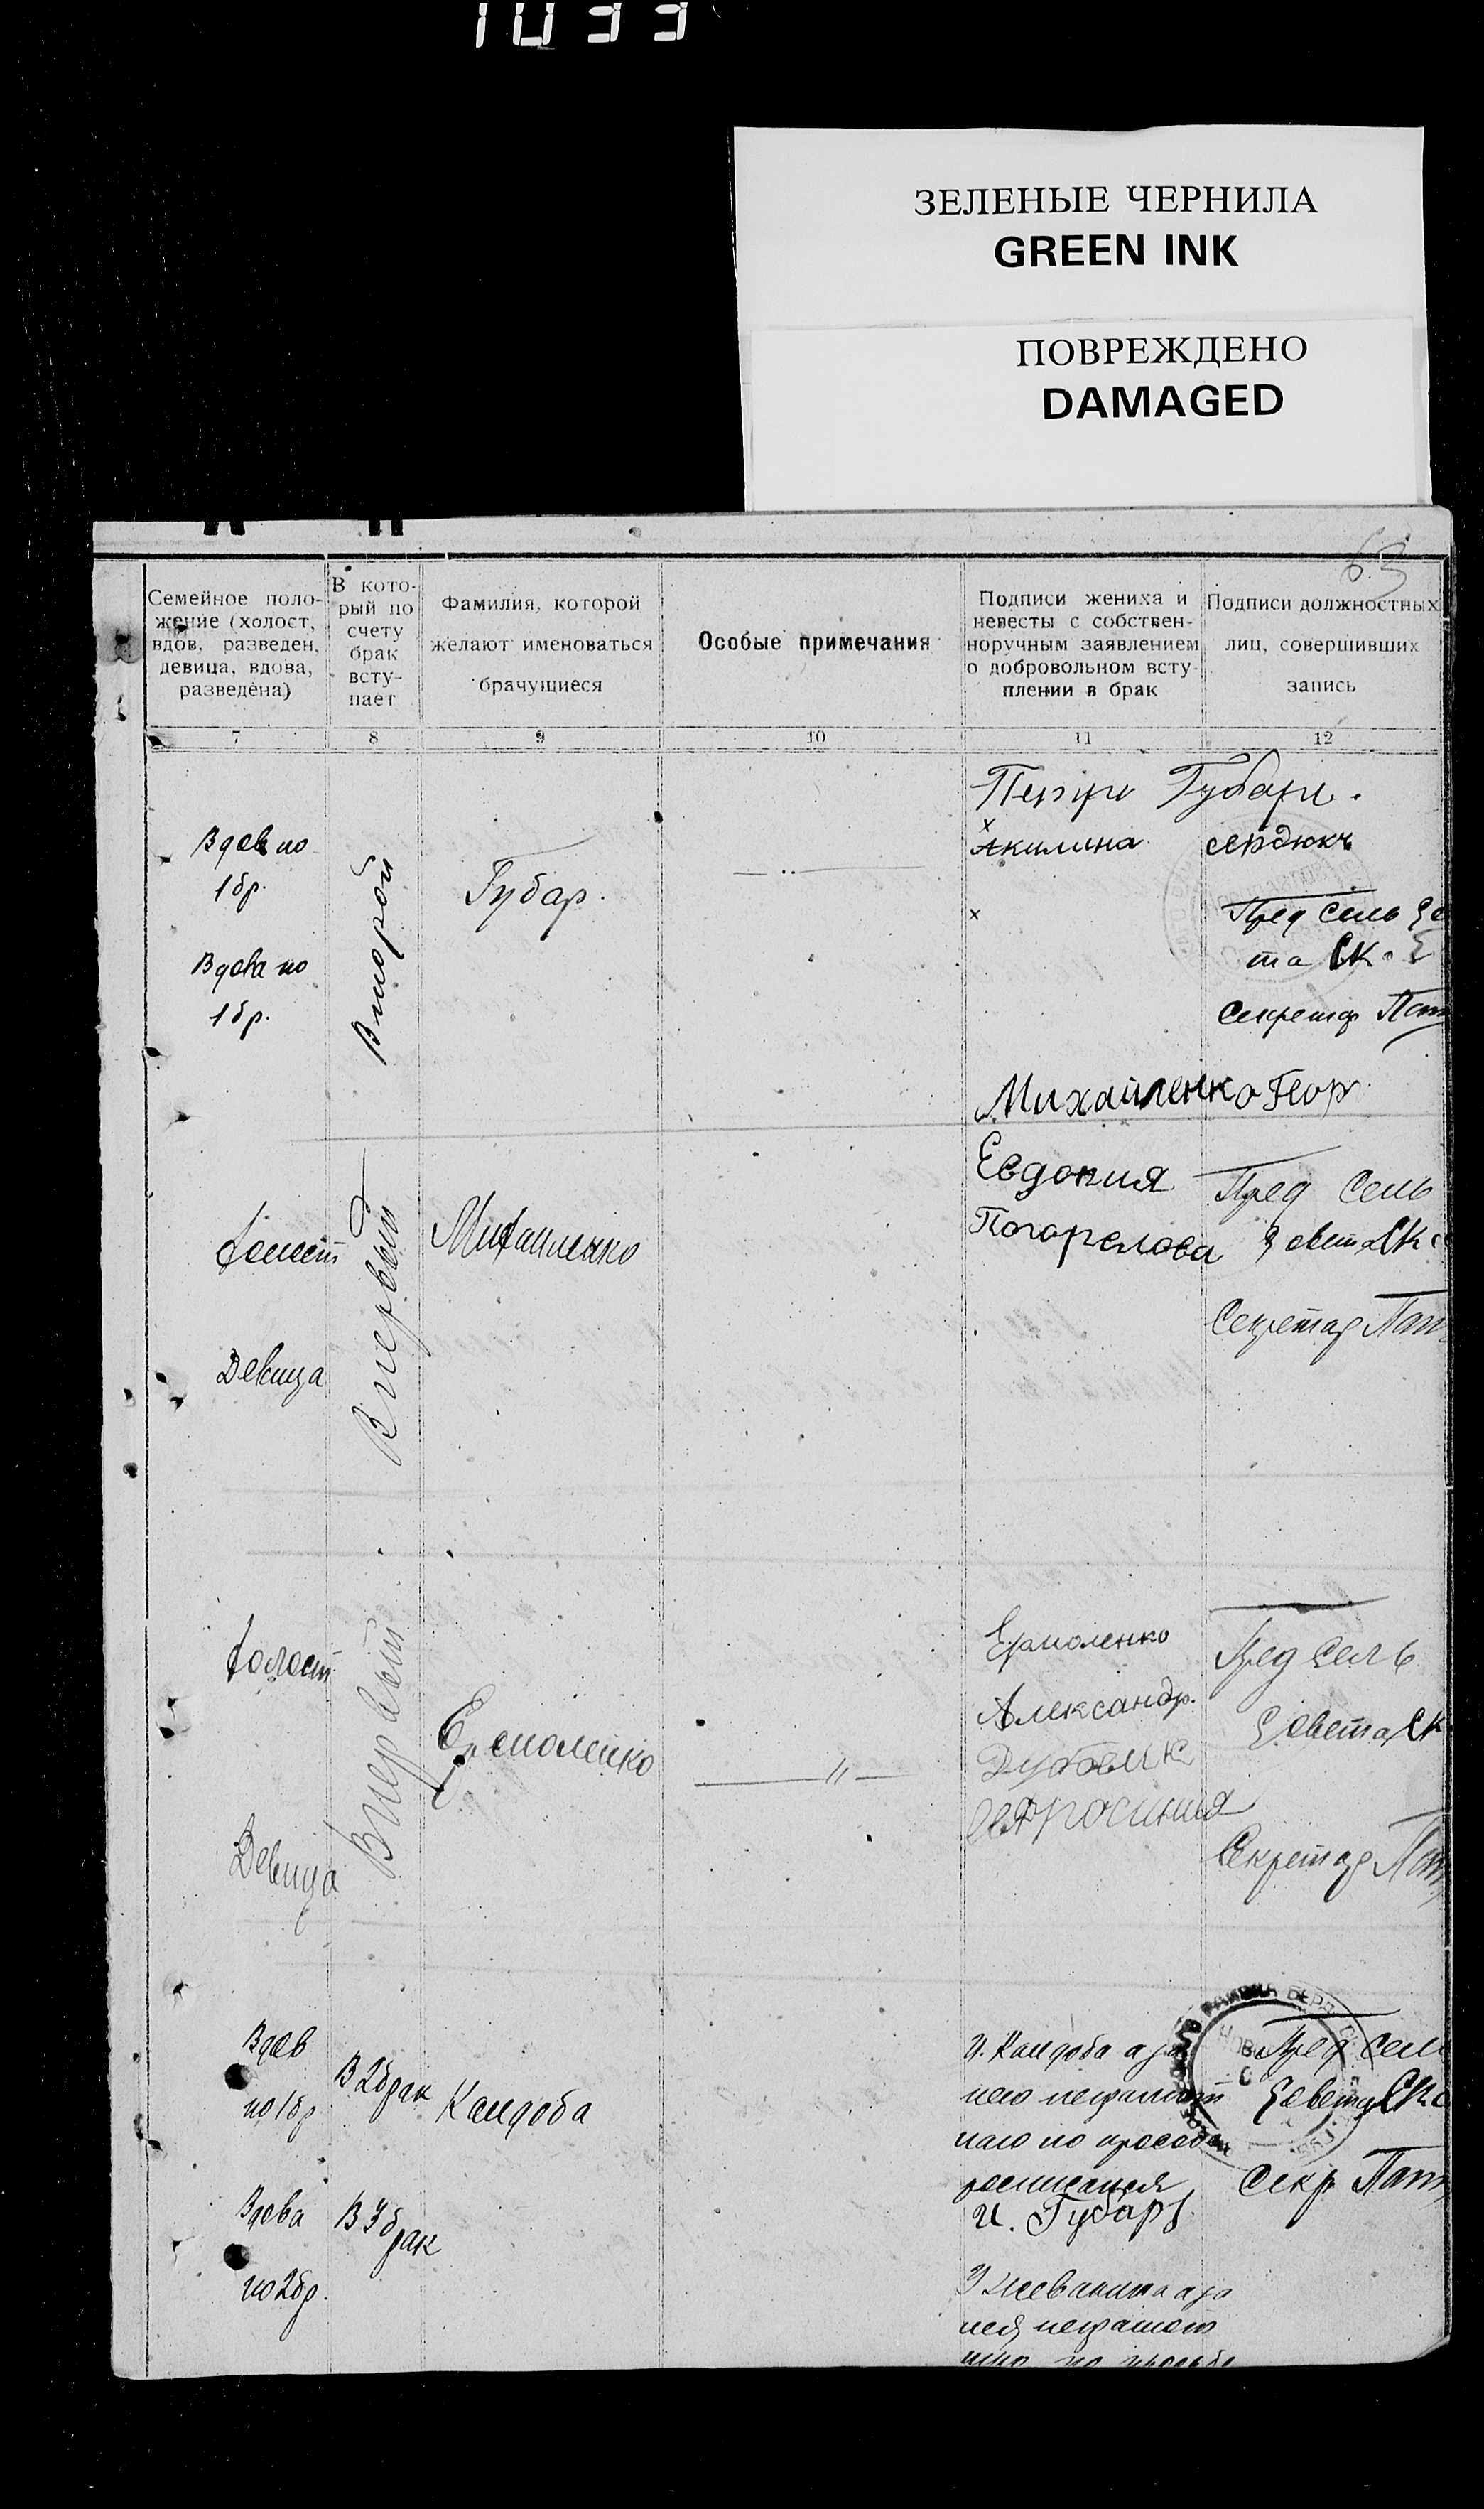 1033
ЗЕЛЕНЫЕ ЧЕРНИЛА
GREEN INK
ПОВРЕЖДЕНО
DAMAGED
63
Семейное поло-
жение (холост,
вдов, разведен,
девица, вдова,
разведена)
В кото-
рый по
счету
брак
всту-
пает
Фамилия, которой
желают именоваться
брачущиеся
Особые примечания
Подписи жениха и
невесты с собствен-
норучным заявлением
о добровольном всту-
плении в брак
Подписи должностных
лиц, совершивших
запись
7 8 9 10 11 12
Вдов по
1 бр.
Вдова по
1 бр.
Второй
Губар.
Губарь.
Акилина Сердюкъ
Пред Сель Со
та СК
Секретар Пат
Холост
Девица
Первый
Михайленко
Михайленко Геор
Евдокия
Погорелова
Пред Сель
Совета СК
Секретар Пат
Холост
Девица
Первый
Ермоленко
"
Ермоленко
Александр.
Пред Сель
Совета СК
Секретар Пат
Вдов
по 1 бр
В 2 брак
Кандоба
Вдова
по 2 бр.
В 3 брак
И. Кандоба а за
него неграмот
наго по просьбе
росписался
И. Губарь
Пред Сель
Совета СК
Секр Пат
а за
нея неграмот
ную по просьбе